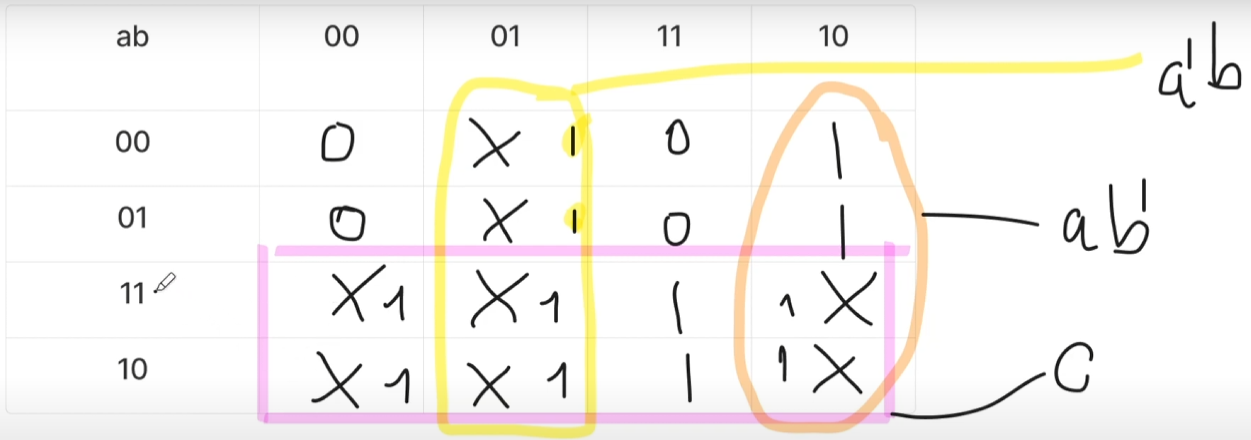 ab 00 01 11 10
a'b
00 0 X 1 0 1
01 0 X 1 0 1
ab'
11 X 1 X 1 1 1 X
10 X 1 X 1 1 1 X
C